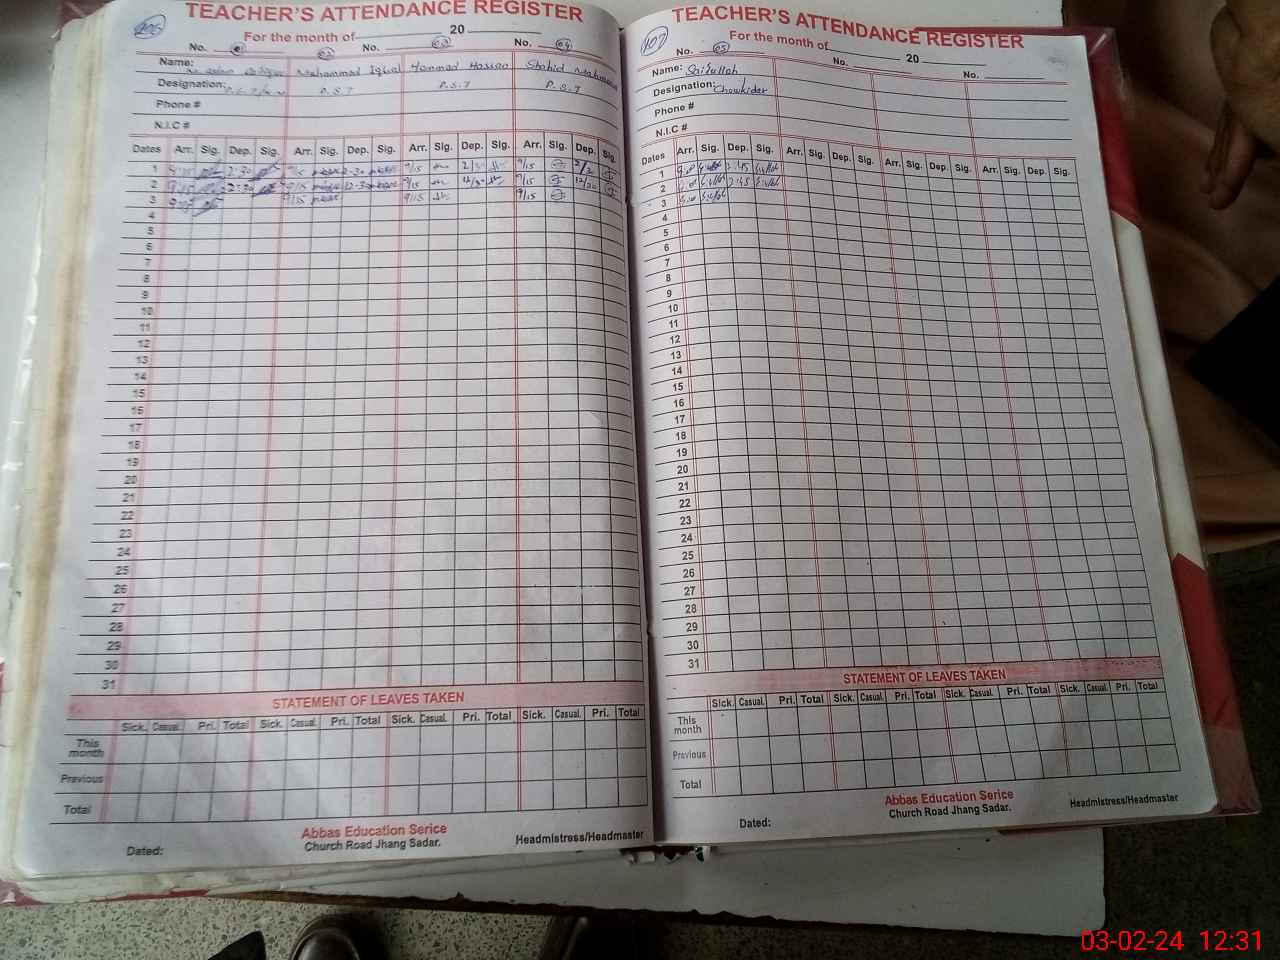 106
TEACHER'S ATTENDANCE REGISTER
For the month of 20
No. 01 02 No. 03 No. 04
Name: Muhammad Iqbal Hammad Hassan Shahid
Designation: P.S.T P.S.T P.S.T
Phone #
N.I.C #
Dates Arr. Sig. Dep. Sig. Arr. Sig. Dep. Sig. Arr. Sig. Dep. Sig. Arr. Sig. Dep. Sig.
1 2:30 9/15 2-30 9/15 9/15
2 9/15 12:30 9/15 12-30 9/15 12/30 9/15 12/30
3 9/15 9/15 9/15
4
5
6
7
8
9
10
11
12
13
14
15
16
17
18
19
20
21
22
23
24
25
26
27
28
29
30
31
STATEMENT OF LEAVES TAKEN
Sick. Casual. Pri. Total Sick. Casual. Pri. Total Sick. Casual. Pri. Total Sick. Casual. Pri. Total
This month
Previous
Total
Abbas Education Serice
Church Road Jhang Sadar.
Headmistress/Headmaster
Dated:
107
TEACHER'S ATTENDANCE REGISTER
For the month of 20
No. 05 No. No.
Name: Saifullah
Designation: Chowkidar
Phone #
N.I.C #
Dates Arr. Sig. Dep. Sig. Arr. Sig. Dep. Sig. Arr. Sig. Dep. Sig. Arr. Sig. Dep. Sig.
1 8:00 2:45
2 8:00 2:45
3 8:00
4
5
6
7
8
9
10
11
12
13
14
15
16
17
18
19
20
21
22
23
24
25
26
27
28
29
30
31
STATEMENT OF LEAVES TAKEN
Sick. Casual. Pri. Total Sick. Casual. Pri. Total Sick. Casual. Pri. Total Sick. Casual. Pri. Total
This month
Previous
Total
Abbas Education Serice
Church Road Jhang Sadar.
Headmistress/Headmaster
Dated:
03-02-24 12:31